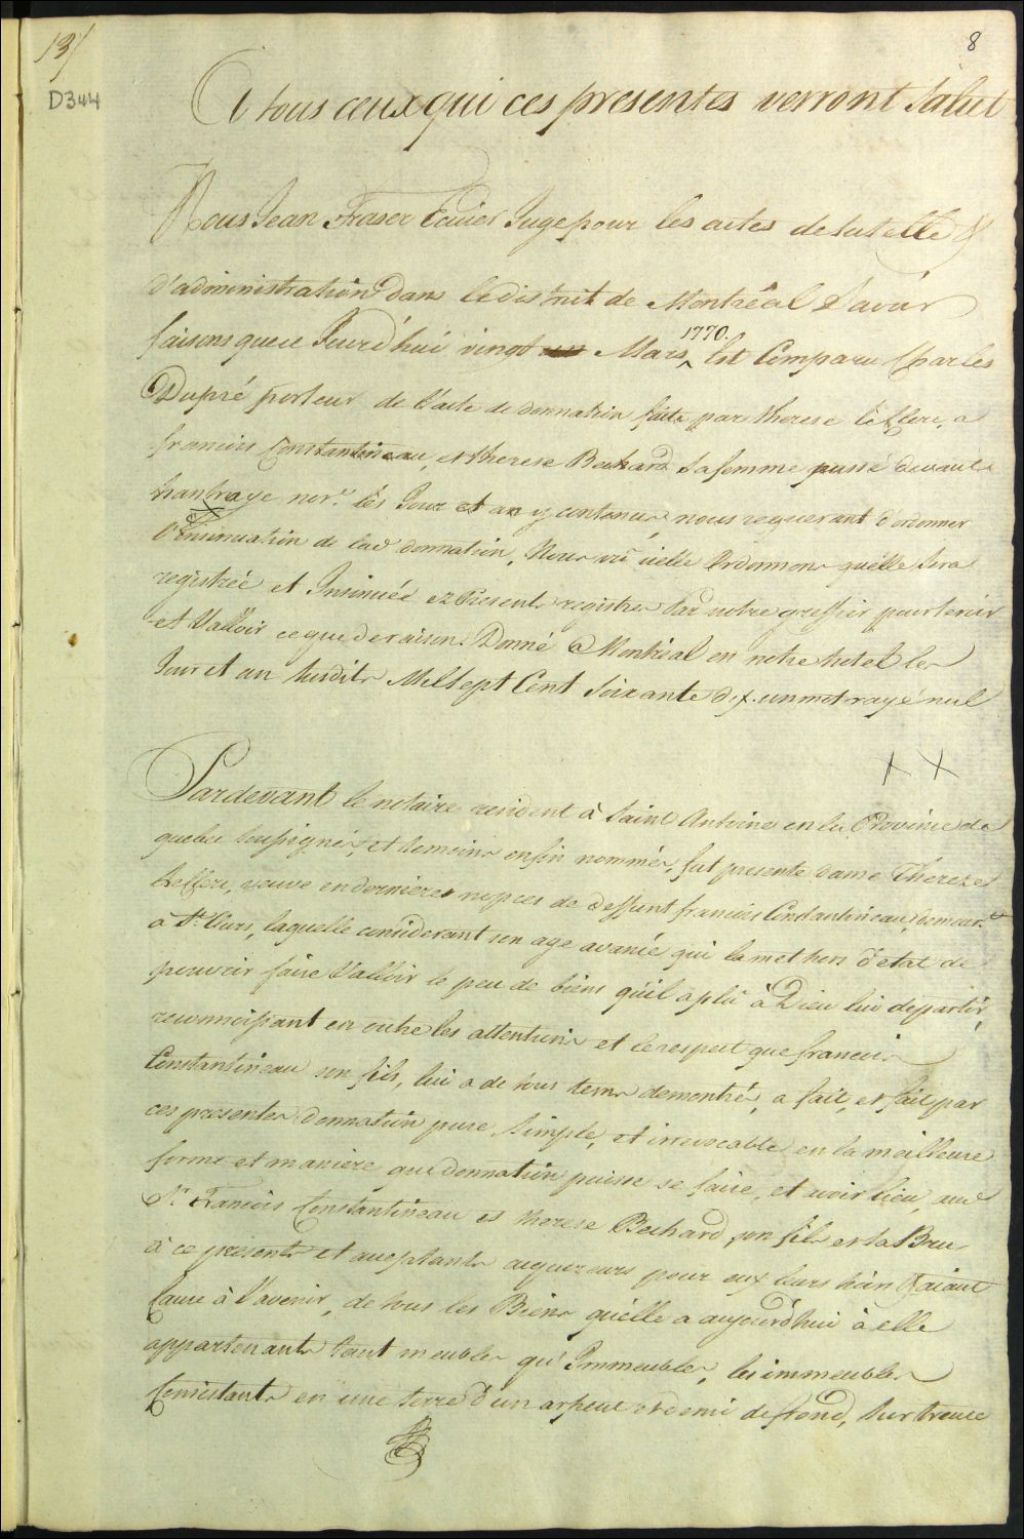 13/
8
D344
A tous ceux qui ces presentes verront Salut
Nous Jean Fraser Ecuier Juge pour les actes de tutelle &
d'administration dans le district de Montréal Savoir
faisons que ce Jourd'hui vingt Mars 1770. Est Comparu Charles
Dupré porteur de l'acte de donnation faite par therese leClerc, a
francois Constantineau, et therese Bechard sa femme passé devant
hantraye nore. les Jour et an y contenus nous requerant d'ordonner
l'Insinuation de lad donnation, Nous vû icelle Ordonnons quélle sera
registrée et Insinuée ez Présents registres Par notre greffier pour servir
et Valloir ce que de raison. Donné a Montréal en notre hotel les
Jour et an Susdits Mil Sept Cent Soixante dix. un mot rayé nul
X X
Pardevant le notaire resident à Saint Antoine en la Province de
quebec soussigné, et temoins enfin nommés, fut presente dame Thereze
Leclerc, veuve en dernieres nopces de deffunt francois Constantineau, demeurt
à St. Ours, laquelle considerant son age avancé qui la met hors d'etat de
pouvoir faire Valloir le peu de biens qu'il a plû à Dieu lui departir,
reconnoissant en outre les attentions et le respect que francois
Constantineau son fils, lui a de tous tems demontrés, a fait, et fait par
ces presentes donnation pure, Simple, et irrevocable en la meilleure
forme et maniere que donnation puisse se faire, et avoir lieu, aud
Sr. Francois Constantineau et therese Bechard, son fils et sa Bru
à ce presents et acceptants acquereurs pour eux leurs hoirs & aiant
Cause à l'avenir, de tous les Biens quélle a aujourd'hui à elle
appartenants tant meubles qu'Immeubles, les immeubles
Consistants en une terre d'un arpent et demi de front, sur trente